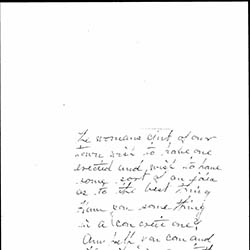 The womans club of our
town wish to have one
erected and wish to have
some sort of an idea
as to the best thing
Have you some thing
in a concrete one?
Any help you can and